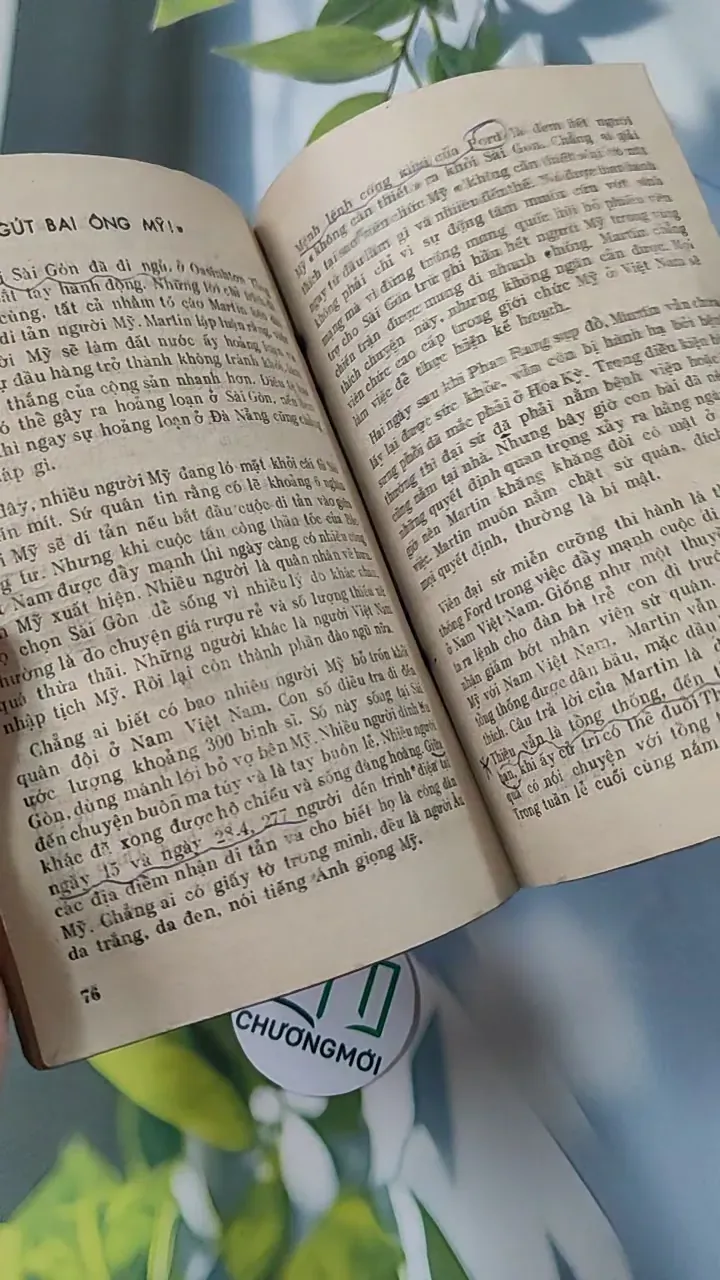 GỨT BAI ÔNG MỸ!»
Sài Gòn đã đi ngủ, ở Oasinhtơn
bắt tay hành động. Những lời chỉ trích
cùng, tất cả nhằm tố cáo Martin
di tản người Mỹ. Martin lập luận rằng,
Mỹ sẽ làm đất nước ấy hoảng loạn
đầu hàng trở thành không tránh khỏi,
thắng của cộng sản nhanh hơn.
có thể gây ra hoảng loạn ở Sài Gòn, nếu
khi ngay sự hoảng loạn ở Đà Nẵng cũng chẳng
gì.
đây, nhiều người Mỹ đang ló mặt khỏi cái
mít. Sứ quán tin rằng có lẽ khoảng 6 nghìn
Mỹ sẽ di tản nếu bắt đầu cuộc di tản vào giữa
tư. Nhưng khi cuộc tấn công thần tốc của Bắc
Nam được đầy mạnh thì ngày càng có nhiều
Mỹ xuất hiện. Nhiều người là quân nhân về hưu,
chọn Sài Gòn để sống vì nhiều lý do khác nhau,
thường là do chuyện giá rượu rẻ và số lượng thiếu nữ
quá thừa thãi. Những người khác là người Việt Nam
nhập tịch Mỹ. Rồi lại còn thành phần đào ngũ nữa.
Chẳng ai biết có bao nhiêu người Mỹ bỏ trốn khỏi
quân đội ở Nam Việt Nam. Con số điều tra đi đến
ước lượng khoảng 300 binh sĩ. Số này sống tại Sài
Gòn, dùng mánh lới bỏ vợ bên Mỹ. Nhiều người dính líu
đến chuyện buôn ma túy và là tay buôn lẻ. Nhiều người
khác đã xong được hộ chiếu và sống đàng hoàng. Giữa
ngày 15 và ngày 28.4, 277 người đến trình diện tại
các địa điểm nhận di tản và cho biết họ là công dân
Mỹ. Chẳng ai có giấy tờ trong mình, đều là người Âu
da trắng, da đen, nói tiếng Anh giọng Mỹ.
76
Mệnh lệnh công khai của Ford là đem hết người
Mỹ «không cần thiết» ra khỏi Sài Gòn. Chẳng ai giải
thích tại sao
ngay từ đầu làm gì và nhiều đến thế.
không phải chỉ vì sự động tâm muốn cứu vớt sinh
mạng mà vì đứng trước mong quốc hội bỏ phiếu viện
trợ cho Sài Gòn trừ phi hầu hết người Mỹ trong vùng
chiến trận được mang đi nhanh chóng. Martin chẳng
thích chuyện này, nhưng không ngăn cản được. Mọi
viên chức cao cấp trong giới chức Mỹ ở Việt Nam sẽ
làm việc để thực hiện kế hoạch.
Hai ngày sau khi Phan Rang sụp đổ, Martin vẫn chưa
lấy lại được sức khỏe, vẫn còn bị hành hạ bởi bệnh
sưng phổi đã mắc phải ở Hoa Kỳ. Trong điều kiện bình
thường thì đại sứ đã phải nằm bệnh viện hoặc
cũng nằm tại nhà. Nhưng bây giờ con bài đã
những quyết định quan trọng xảy ra hằng ngày
giờ nên Martin khăng khăng đòi có mặt ở
việc. Martin muốn nắm chặt sứ quán, đích
mọi quyết định, thường là bí mật.
Viên đại sứ miễn cưỡng thi hành là
thống Ford trong việc đầy mạnh cuộc di
ở Nam Việt-Nam. Giống như một thuyền
ta ra lệnh cho đàn bà trẻ con đi trước
nhận giảm bớt nhân viên sứ quán.
Mỹ với Nam Việt Nam, Martin vẫn
tổng thống được dân bầu, mặc dầu
thích. Câu trả lời của Martin là
Thiệu vẫn là tổng thống, đến
khi ấy cử tri có thể đuổi
quả có nói chuyện với tổng
Trong tuần lễ cuối cùng năm
CHƯƠNGMỚI